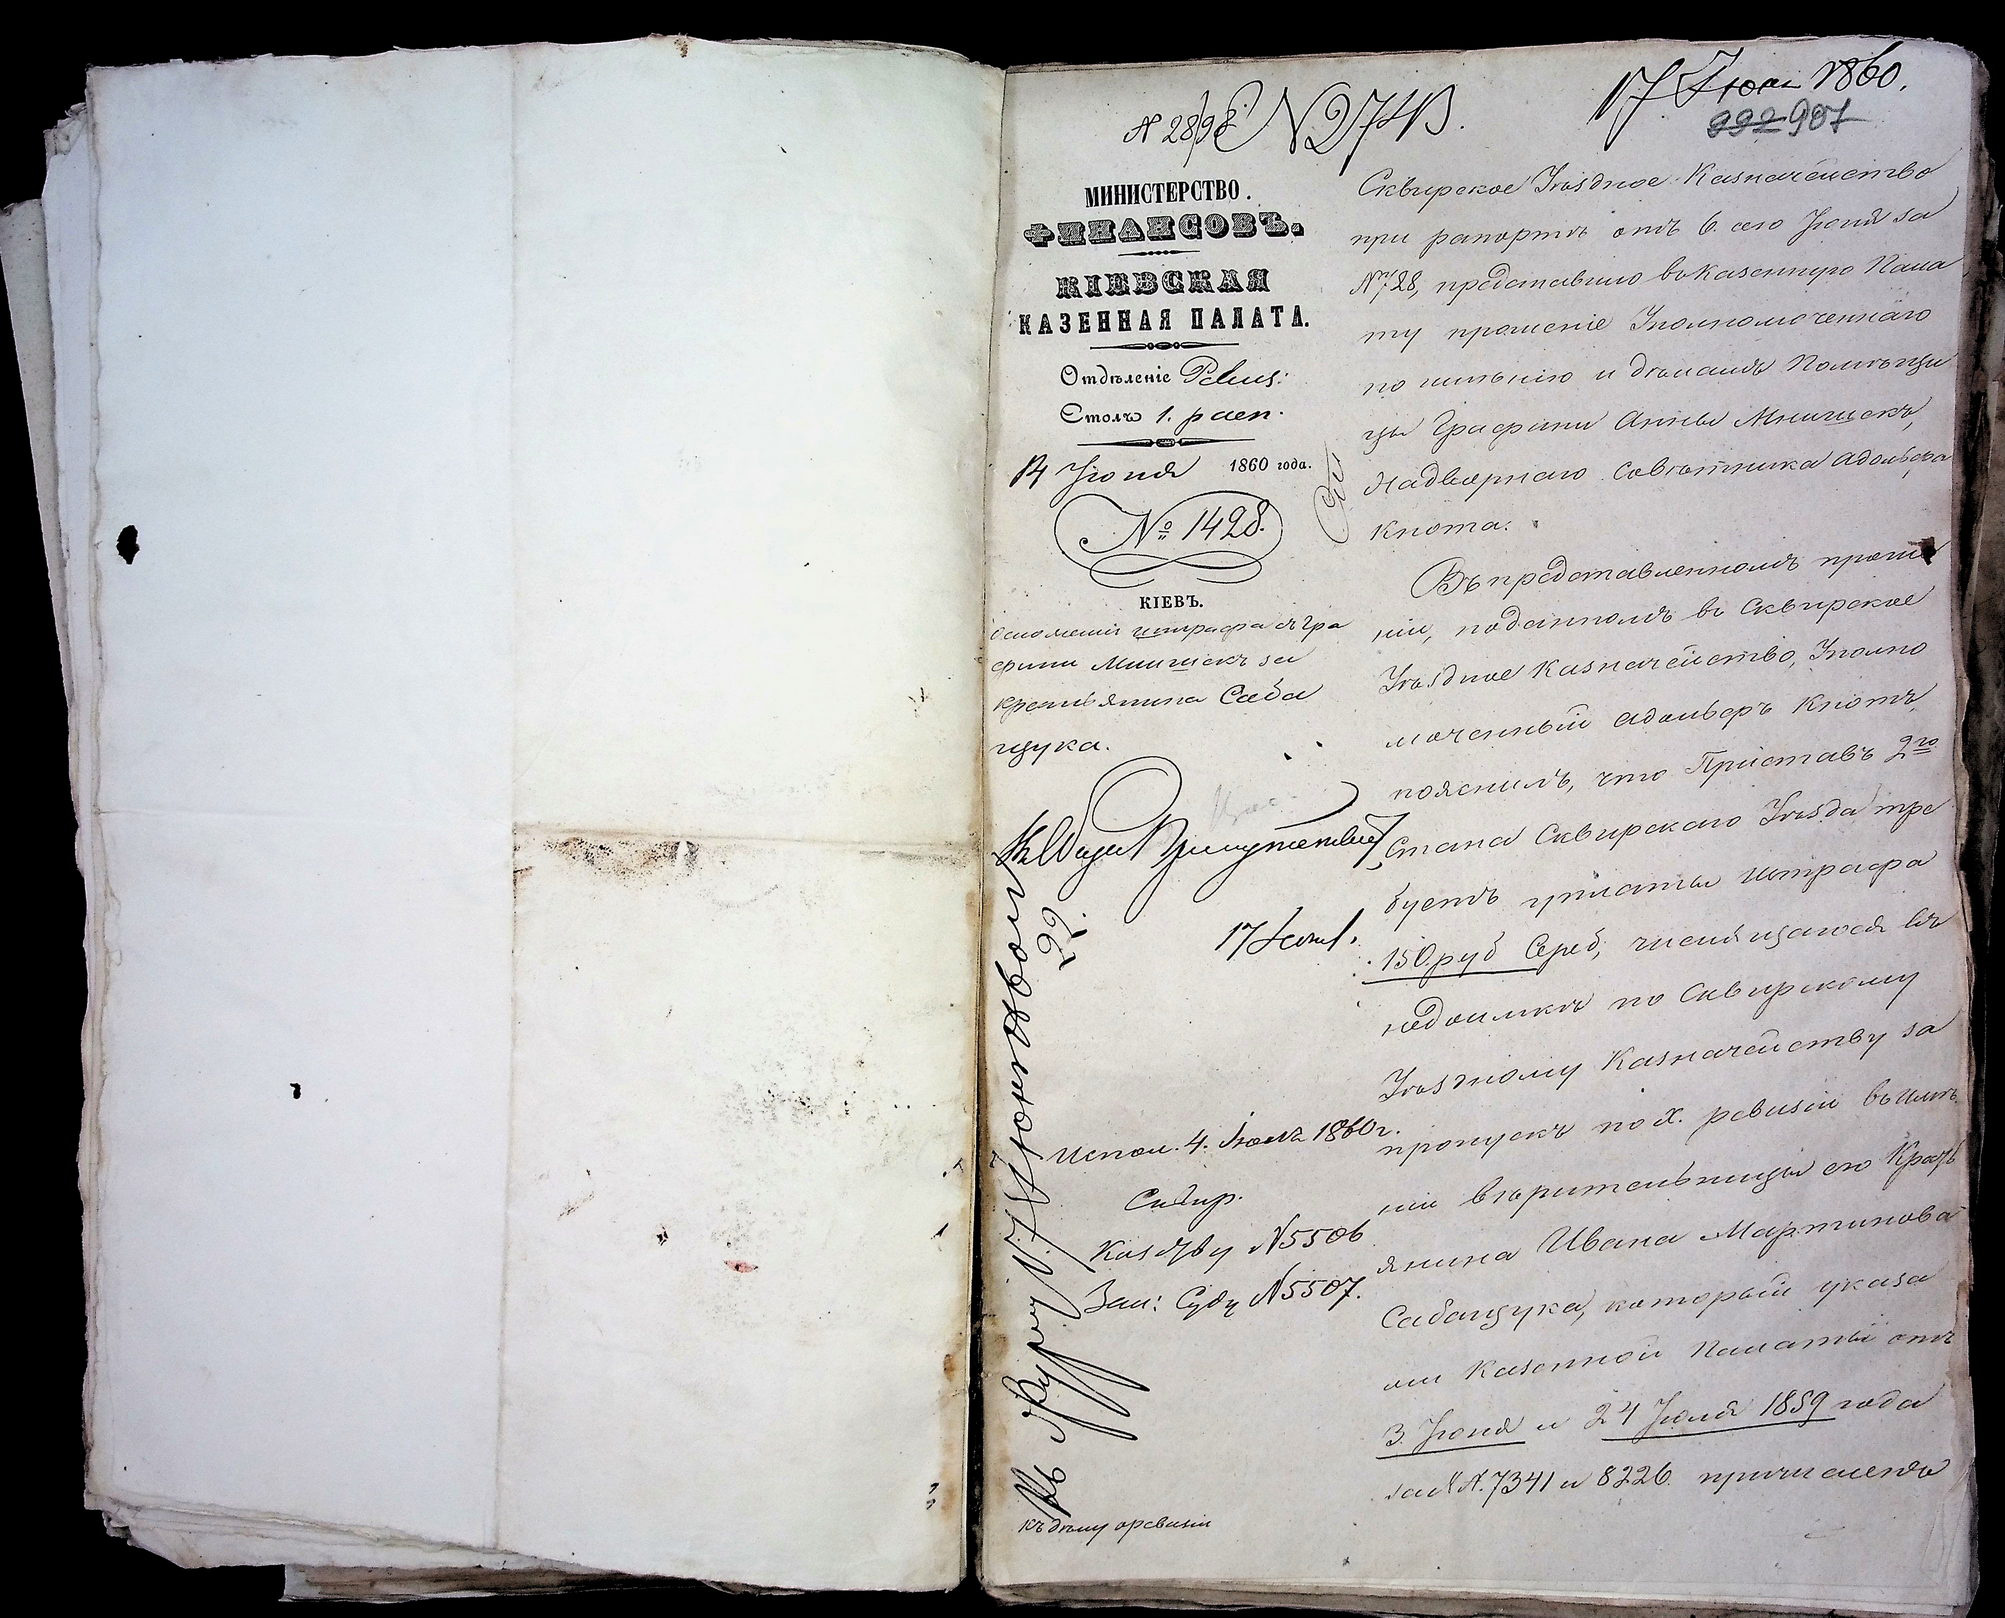 17 Июня 1860.
№ 2743.
992 907
МИНИСТЕРСТВО.
ФИНАНСОВЪ.
КІЕВСКАЯ
КАЗЕННАЯ ПАЛАТА.
Отдѣленіе Ревиз:
Столъ 1.
14 Июня 1860 года.
№ 1428.
КІЕВЪ.
О сложеніи штрафа съ Гра
фини Мнишекъ за
крестьянина Саба
щука.
Къ Общ. Присутствію
17 Июня.
Испол. 4. Июля 1860 г.
Сквир.
Казн-ву № 5506
Зем: Суду № 5507.
къ дѣлу о ревизіи
Сквирское Уѣздное Казначейство
при рапортѣ отъ 6. сего Июня за
№ 728, представило въ Казенную Пала
ту прошеніе Уполномоченнаго
по имѣнію и дѣламъ Помѣщи
цы Графини Анны Мнишекъ,
Надворнаго Совѣтника Адольфа
Кнота.
Въ представленномъ проше
ніи, поданномъ въ Сквирское
Уѣздное Казначейство, Уполно
моченный Адольфъ Кнотъ,
пояснилъ, что Приставъ 2го
Стана Сквирскаго Уѣзда тре
буетъ уплаты штрафа
150 руб Сереб, числящагося въ
недоимкѣ по Сквирскому
Уѣздному Казначейству за
пропускъ по X. ревизіи въ имѣ
ніи вѣрительницы его Кресть
янина Ивана Мартинова
Сабащука, который указа
ми Казенной Палаты отъ
3. Июня и 24 Июля 1859 года
за № 7341 и 8226 причисленъ